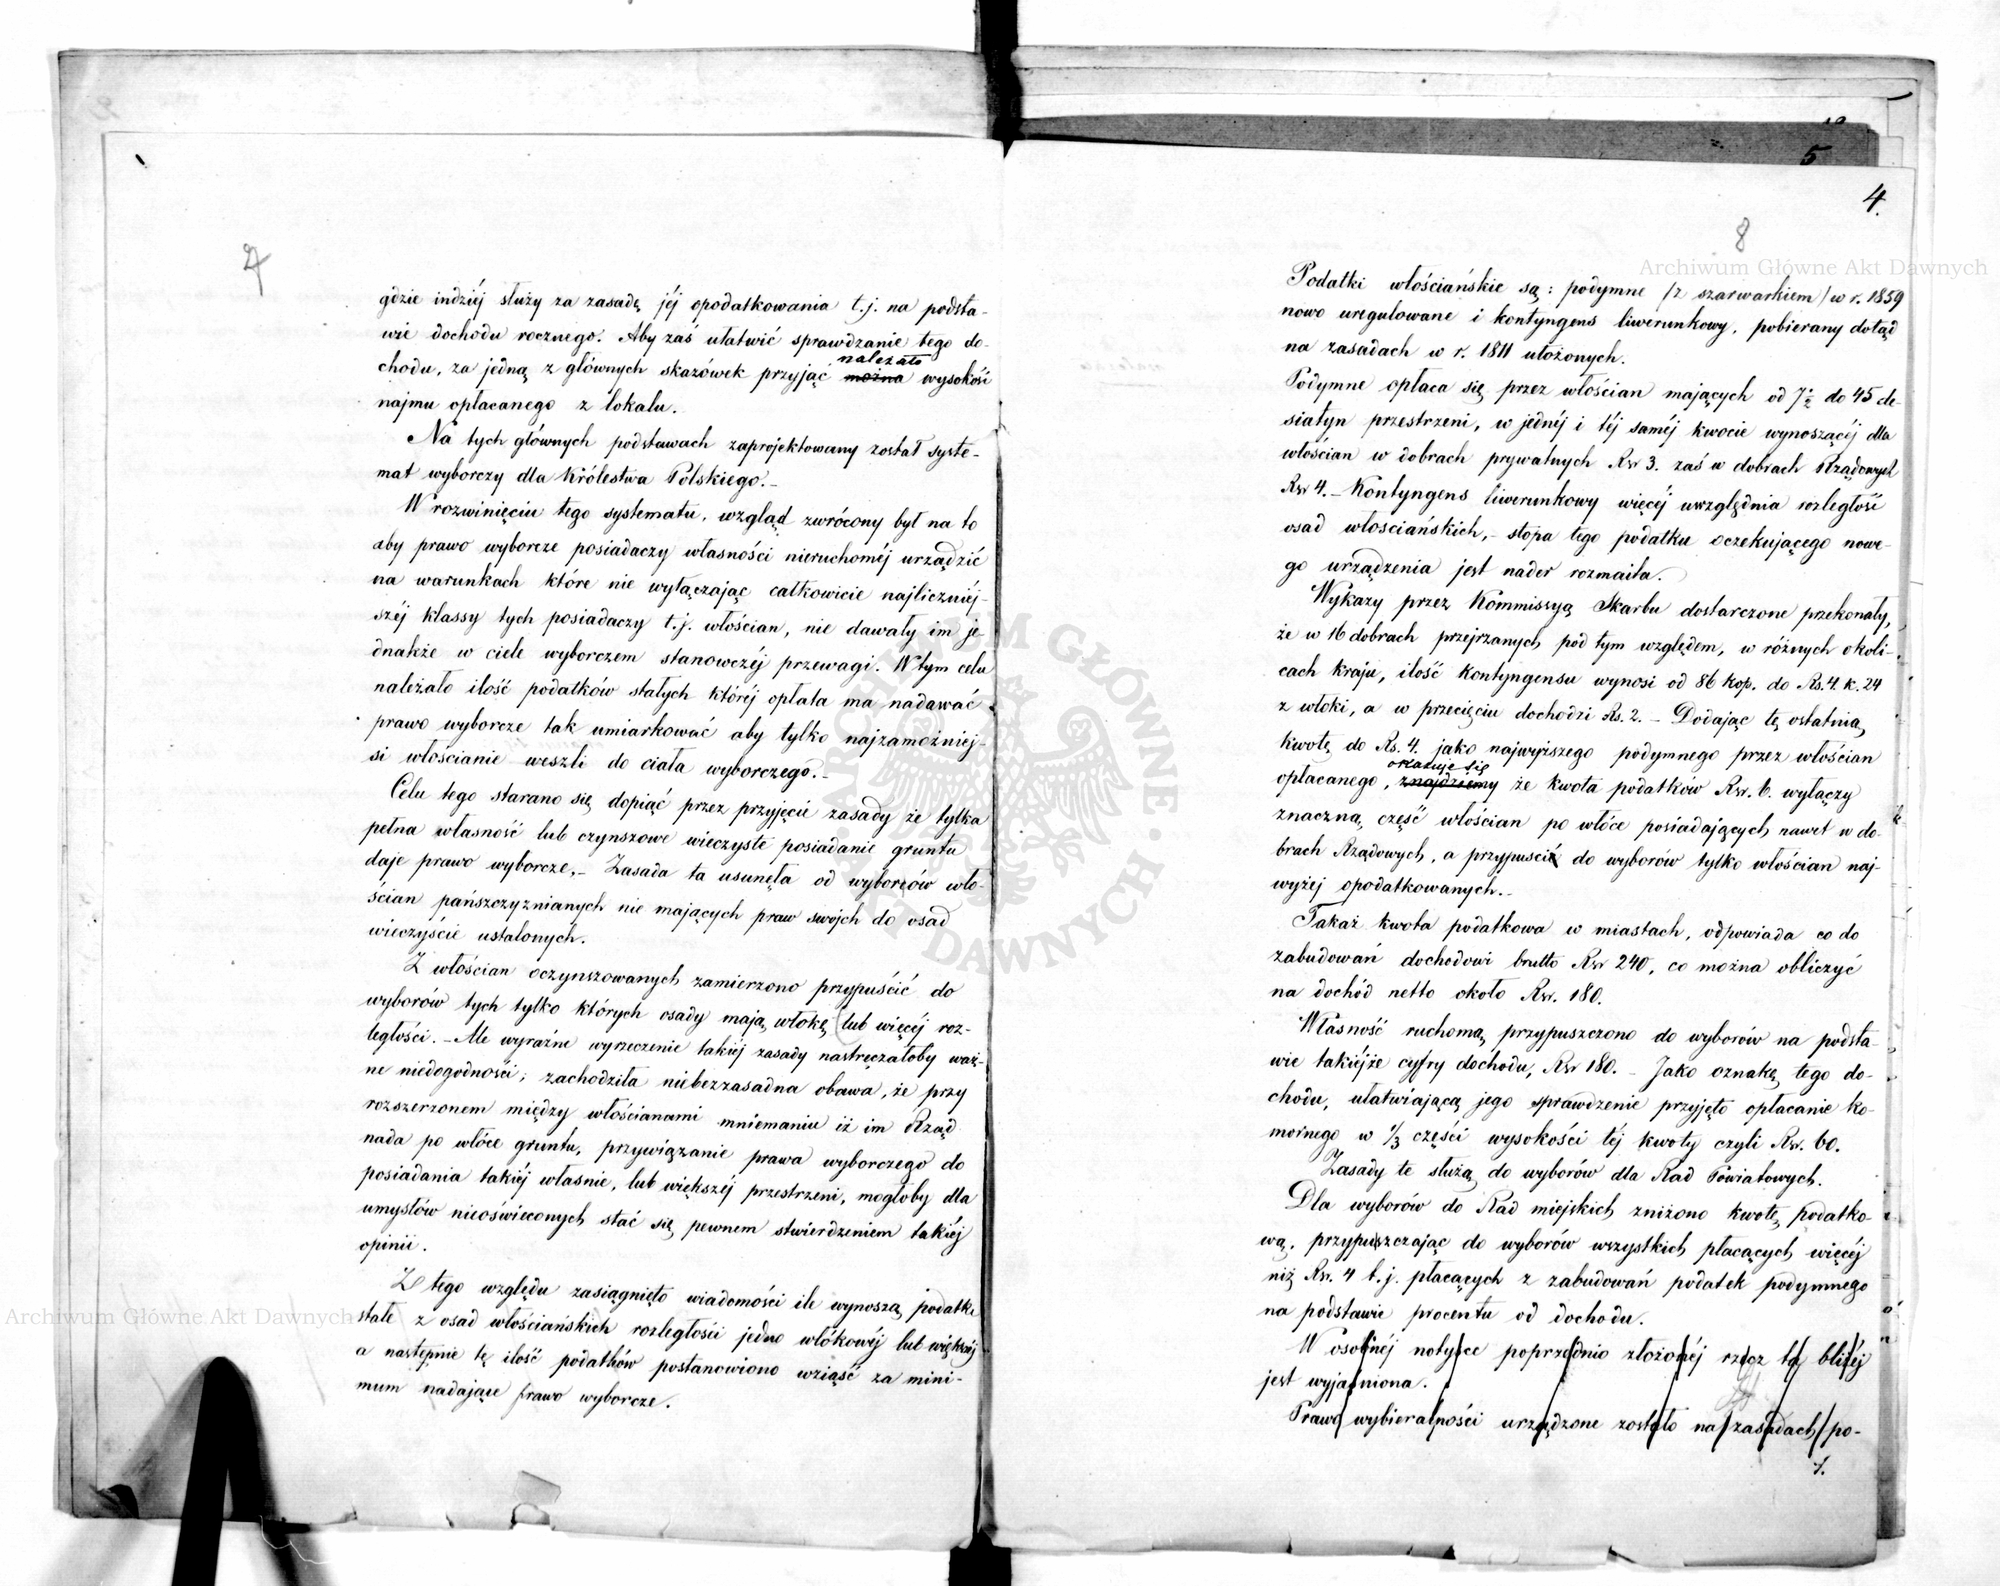 7
gdzie indziéj służy za zasadę jéj opodatkowania t.j. na podsta-
wie dochodu rocznego. Aby zaś ułatwić sprawdzanie tego do-
należało
chodu, za jedną z głównych skazówek przyjąć można wysokość
najmu opłacanego z lokalu.
Na tych głównych podstawach zaprojektowany został syste-
mat wyborczy dla Królestwa Polskiego.-
W rozwinięciu tego systematu, wzgląd zwrócony był na to
aby prawo wyborcze posiadaczy własności nieruchoméj urządzić
na warunkach które nie wyłączając całkowicie najliczniéj-
széj klassy tych posiadaczy t.j. włościan, nie dawały im je-
dnakże w ciele wyborczem stanowczéj przewagi. W tym celu
należało ilość podatków stałych któréj opłata ma nadawać
prawo wyborcze tak umiarkować aby tylko najzamożniej-
si włościanie weszli do ciała wyborczego.-
Celu tego starano się dopiąć przez przyjęcie zasady że tylko
pełna własność lub czynszowe wieczyste posiadanie gruntu
daje prawo wyborcze.- Zasada ta usunęła od wyborców wło-
ścian pańszczyznianych nie mających praw swoich do osad
wieczyście ustalonych.
Z włościan oczynszowanych zamierzono przypuścić do
wyborów tych tylko których osady mają włokę lub więcéj roz-
ległości.- Ale wyraźne wyrzeczenie takiéj zasady nastręczałoby waż-
ne niedogodności; zachodziła niebezzasadna obawa, że przy
rozszerzonem między włościanami mniemaniu iż im Rząd
nada po włóce gruntu, przywiązanie prawa wyborczego do
posiadania takiéj własnie, lub większéj przestrzeni, mogłoby dla
umysłów nieoświeconych stać się pewnem stwierdzeniem takiéj
opinii.
Z tego względu zasiągnięto wiadomości ile wynoszą podatki
stałe z osad włościańskich rozległości jedno włókowéj lub większéj
a następnie tę ilość podatków postanowiono wziąść za mini-
mum nadające prawo wyborcze.
5
4.
8
Podatki włościańskie są: podymne (z szarwarkiem) w r. 1859
nowo uregulowane i kontyngens liwerunkowy, pobierany dotąd
na zasadach w r. 1811 ułożonych.
Podymne opłaca się przez włościan mających od 7½ do 45 de-
siatyn przestrzeni, w jednéj i téj saméj kwocie wynoszącéj dla
włościan w dobrach prywatnych Rsr 3. zaś w dobrach Rządowych
Rsr 4.- Kontyngens liwerunkowy więcéj uwzględnia rozległość
osad włościańskich,- stopa tego podatku oczekującego nowe-
go urządzenia jest nader rozmaita.
Wykazy przez Kommissyą Skarbu dostarczone przekonały,
że w 16 dobrach przejrzanych pod tym względem, w różnych okoli-
cach kraju, ilość kontyngensu wynosi od 86 kop. do Rs. 4. k. 24
z włoki, a w przecięciu dochodzi Rs. 2.- Dodając tę ostatnią
kwotę do Rs. 4. jako najwyższego podymnego przez włościan
okazuje się
opłacanego, znajdziemy że kwota podatków Rsr. 6. wyłączy
znaczną część włościan po włóce posiadających nawet w do-
brach Rządowych, a przypuści do wyborów tylko włościan naj-
wyżej opodatkowanych.-
Takaż kwota podatkowa w miastach, odpowiada co do
zabudowań dochodowi brutto Rsr 240, co można obliczyć
na dochód netto około Rsr. 180.
Własność ruchomą przypuszczono do wyborów na podsta-
wie takiéjże cyfry dochodu, Rsr 180.- Jako oznakę tego do-
chodu, ułatwiającą jego sprawdzenie przyjęto opłacanie ko-
mornego w 1/3 części wysokości téj kwoty czyli Rsr. 60.
Zasady te służą do wyborów dla Rad Powiatowych.
Dla wyborów do Rad miejskich zniżono kwotę podatko-
wą, przypuszczając do wyborów wszystkich płacących więcéj
niż Rsr. 4 t.j. płacących z zabudowań podatek podymnego
na podstawie procentu od dochodu.
W osobnéj notyce poprzednio złożonéj rzecz ta bliżéj
jest wyjaśniona.
Prawo wybieralności urządzone zostało na zasadach po-
Archiwum Główne Akt Dawnych
Archiwum Główne Akt Dawnych
ARCHIWUM GŁÓWNE AKT DAWNYCH